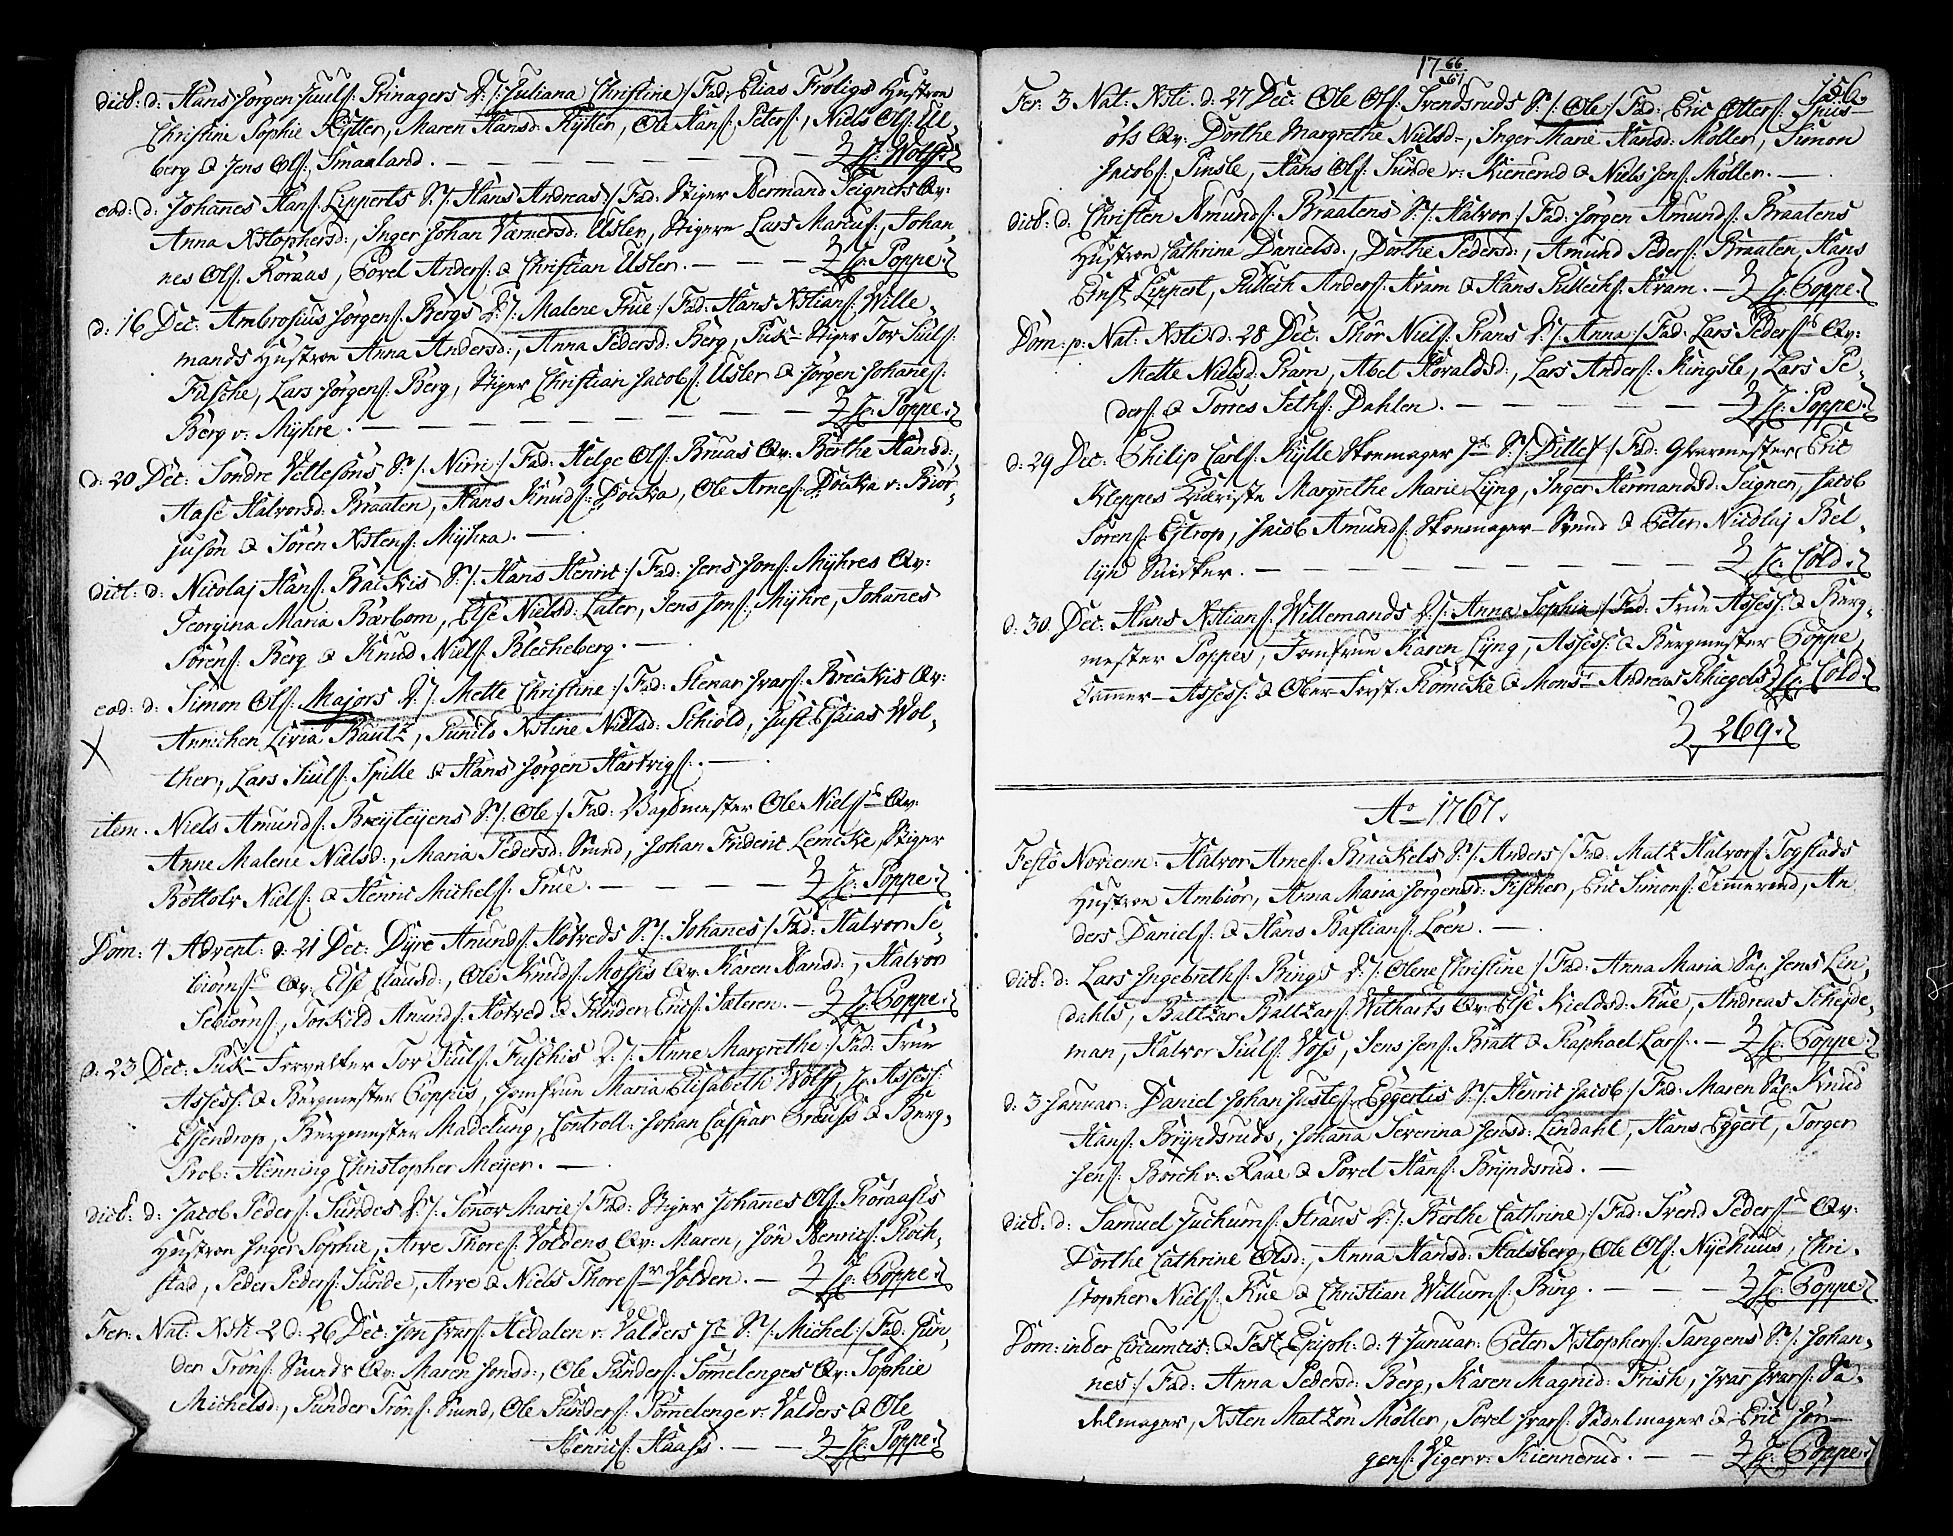 dict: d: Hans Jörgen Juuls: Prinagers D:/: Juliana Christine :/ Fad: Elias Fröligs Hustroe
Christine Sophie Rÿtter, Maren Hansd: Rÿtter, Ole Hans: Peters:, Niels Ols: Ul-
berg & Jens Ols: Smaaland. — Hr: Wolff.
eod: d: Johannes Hans: Lipperts S:/: Hans Andreas :/ Fad: Stiger Hermand Seigners Qv:
Anna Xstophersd:, Inger Johan Varnersd: Usler, Stiger Lars Marcus:, Johan
nes Ols: Roraas, Povel Anders: & Christian Usler. — Hr: Poppe.
d: 16 Dec: Ambrosius Jörgens: Bergs D:/: Malene Prüe :/ Fad: Hans Xstians: Wille-
mands Hustroe Anna Andersd:, Anna Pedersd: Berg, Puk-Stiger Tor Juls:
Fusche, Lars Jörgens: Berg, Stiger Christian Jacobs: Usler & Jörgen Johanes:
Berg v: Mÿhre. — Hr: Poppe.
d: 20 Dec: Söndre Vettesöns S:/: Nirri :/ Fad: Helge Ols: Bruas Qv: Berthe Hansd:,
Aase Halvorsd: Braaten, Hans Knuds: Docka, Ole Arnes: Docka v: Biör-
jusön & Sören Xstens: Mÿhra. —
dict: d: Nicolaj Hans: Backis S:/: Hans Henric :/ Fad: Jens Jons: Mÿhres Qv:
Georgina Maria Barbom, Else Nielsd: Later, Jens Jons: Mÿhre, Johanes
Sörens: Berg & Knud Niels: Blecheberg. —
eod: d: Simon Ols: Majors D:/: Mette Christine :/ Fad: Stenar Ivars: Breckis Qv:
Annichen Livia Bautz, Gunild Xstine Nielsd: Schiold, Just Esaias Wol-
ther, Lars Juls: Spille & Hans Jörgen Hartvigs:. —
item. Niels Amunds: Breÿleÿens S:/: Ole :/ Fad: Vagtmester Ole Niels: Qv:
Anne Malene Nielsd:, Maria Pedersd: Sund, Johan Frideric Lemcke, Stiger
Böttolv Niels: & Henric Michels: Prue. — Hr: Poppe.
Dom: 4 Advent: d: 21 Dec: Dÿre Anunds: Hotveds S:/: Johanes :/ Fad: Halvor Se-
biörns: Qv: Else Clausd:, Ole Knuds: Mossis Qv: Karen Hansd:, Halvor
Sebiörns:, Torkild Anunds: Hotved & Gunder Erics: Sateren. — Hr: Poppe.
d: 23 Dec: Puk-Forvalter Tor Juuls: Fuschis D:/: Anne Margrethe :/ Fad: Frue
Assess: & Bergmester Poppis, Jomfrue Maria Elisabeth Wolff, Hr: Assess:
Essendrop, Bergmester Madelung, Controll: Johan Caspar Crauss & Berg-
Prob: Henning Christopher Meÿer. —
dict: d: Jacob Peders: Sundes D:/: Sönov Marie :/ Fad: Stiger Johanes Ols: Roraasis
Hustroe Inger Sophie, Arve Thores: Voldens Qv: Maren, Jön Henrics: Roch-
stad, Peder Peders: Sunde, Arve & Niels Thores: Volden. — Hr: Poppe.
Fer: Nat: Xsti 2 d: 26 Dec: Jon Ivars: Hedalen v: Valders S:/: Michel :/ Fad: Gun-
der Tröns: Sunds Qv: Maren Jonsd:, Ole Gunders: Tömelenges Qv: Sophie
Michelsd:, Gunder Tröns: Sund, Ole Gunders: Tömelenge v: Valders & Ole
Henrics: Haass. — Hr: Poppe.
17 66/67
156.
Fer: 3 Nat: Xsti: d: 27 Dec: Ole Ols: Svendsruds S:/: Ole :/ Fad: Eric Otters: Spus-
öls Qv: Dorthe Margrethe Nielsd:, Inger Marie Hansd: Möller, Simon
Jacobs: Tinsle, Hans Ols: Sunde v: Kienerud & Niels Jens: Möller. —
dict: d: Christen Amunds: Braatens S:/: Halvor :/ Fad: Jörgen Amunds: Braatens
Hustroe Cathrine Danielsd:, Dorthe Pedersd:, Amund Peders: Braaten, Hans
Ernst Lippert, Gullich Anders: Kram & Hans Gullichs: Kram. — Hr: Poppe.
Dom: p: Nat: Xsti d: 28 Dec: Thör Niels: Prans D:/: Anna :/ Fad: Lars Peders: Qv:
Mette Nielsd: Kram, Abel Haraldsd:, Lars Anders: Kingsle, Lars Pe-
ders: & Torres Seths: Dahlen. — Hr: Poppe.
d: 29 Dec: Philip Carls: Hÿlle Skoemager S:/: Ditlef :/ Fad: Glarmester Eric
Kleppes Kiæriste Margrethe Marie Lÿng, Inger Hermandsd: Seigner, Jacob
Sörens: Eftrop, Jacob Amunds: Skoemager Svend & Peter Nicolaj Bel-
lÿn Snidker. — Hr: Cold.
d: 30 Dec: Hans Xstians: Willemands D:/: Anna Sophia :/ Fad: Frue Assess: & Berg-
mester Poppes, Jomfrue Karen Lÿng, Assess: & Bergmester Poppe,
Cammer-Assess: & Ober-Forst. Römcke & Mons: Andreas Schlegel. Hr: Cold.
269.
Ao 1767.
Festo Novi ann: Halvor Arnes: Bruckels S:/: Anders :/ Fad: Matz Halvors: Togstads
Hustroe Ambior, Anna Maria Jörgensd: Fischer, Eric Simons: Timerend, An
ders Daniels: & Hans Bastians: Löen. —
dict: d: Lars Ingebreths: Rings D:/: Olene Christine :/ Fad: Anna Maria Sal: Jens Lin-
dahls, Baltzar Baltzars: Witharts Qv: Else Kieldsd: Rue, Andreas Scheÿde-
man, Halvor Juls: Voss, Jens Jens: Bratt & Raphael Lars:. — Hr: Poppe.
d: 3 Januar: Daniel Johan Justes: Eggertis S:/: Henric Jacob :/ Fad: Maren Sal: Knud
Hans: Brÿndsruds, Johana Severina Jensd: Lindahl, Hans Eggert, Torger
Jens: Borch v: Raae & Povel Hans: Brÿndsrud. —
dict: d: Samuel Juchums: Straus D:/: Berthe Cathrine :/ Fad: Svend Peders: Qv:
Dorthe Cathrine Olsd:, Anna Hansd: Stalsberg, Ole Ols: Nÿehuus, Chri-
stopher Niels: Rue & Christian Willums: Ring. — Hr: Poppe.
Dom: inter Circumcis: & Fest: Epiph: d: 4 Januar: Peter Xstophers: Tangens S:/: Johan-
nes :/ Fad: Anna Pedersd: Berg, Karen Magnid: Frish, Ivar Ivars: Sa-
delmager, Xsten Matzön Möller, Povel Ivars: Sadelmager & Eric Jör-
gens: Viger v: Kiennerud. — Hr: Poppe.